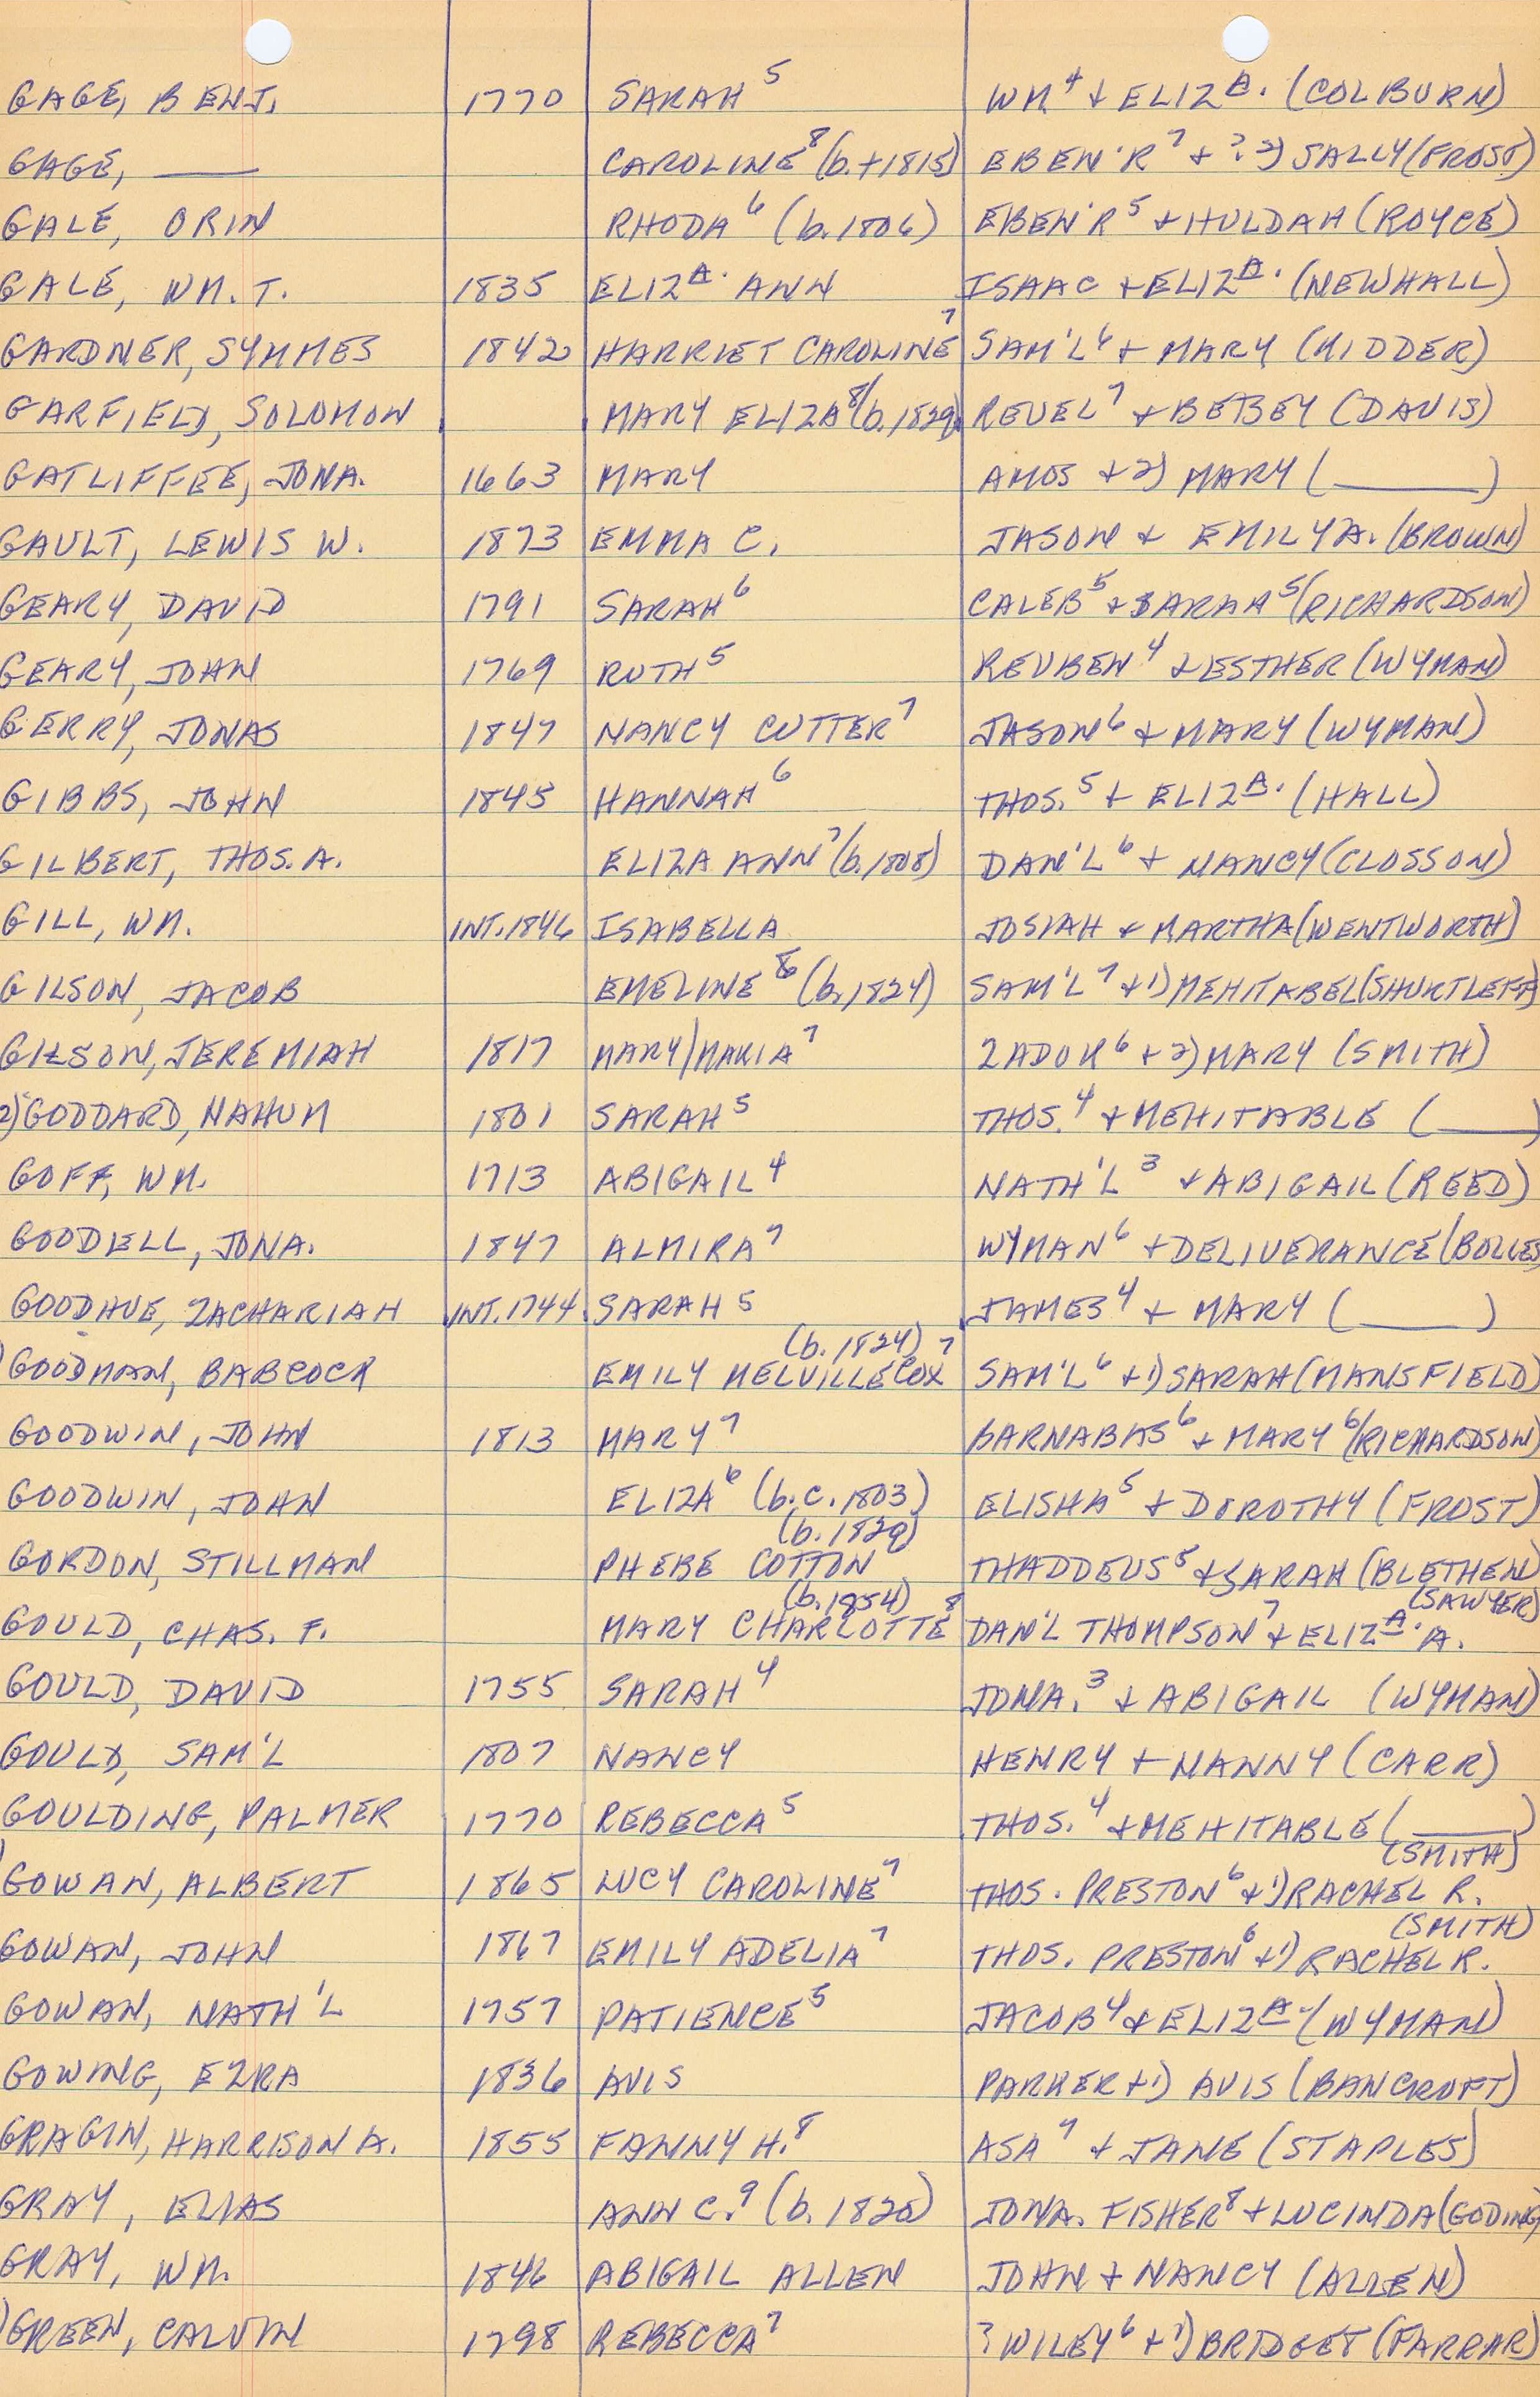 GAGE, BENJ. 1770 SARAH⁵ WM⁴ + ELIZᴬ. (COLBURN)
GAGE, —— CAROLINE⁸ (b.+1815) EBEN'R⁷ + ?2) SALLY (FROST)
GALE, ORIN RHODA⁶ (b.1806) EBEN'R⁵ + HULDAH (ROYCE)
GALE, WM. T. 1835 ELIZᴬ. ANN ISAAC + ELIZᴬ. (NEWHALL)
GARDNER, SYMMES 1842 HARRIET CAROLINE⁷ SAM'L⁶ + MARY (KIDDER)
GARFIELD, SOLOMON MARY ELIZA⁸ (b.1829) REUEL⁷ + BETSEY (DAVIS)
GATLIFFEE, JONA. 1663 MARY AMOS + 2) MARY (______)
GAULT, LEWIS W. 1873 EMMA C. JASON + EMILY A. (BROWN)
GEARY, DAVID 1791 SARAH⁶ CALEB⁵ + SARAH⁵ (RICHARDSON)
GEARY, JOHN 1769 RUTH⁵ REUBEN⁴ + ESTHER (WYMAN)
GERRY, JONAS 1847 NANCY CUTTER⁷ JASON⁶ + MARY (WYMAN)
GIBBS, JOHN 1845 HANNAH⁶ THOS.⁵ + ELIZᴬ. (HALL)
GILBERT, THOS. A. ELIZA ANN⁷ (b.1808) DAN'L⁶ + NANCY (CLOSSON)
GILL, WM. INT.1846 ISABELLA JOSIAH + MARTHA (WENTWORTH)
GILSON, JACOB EMELINE⁸ (b.1824) SAM'L⁷ +1) MEHITABEL (SHURTLEFF)
GILSON, JEREMIAH 1817 MARY/MARIA⁷ ZADOK⁶ + 2) MARY (SMITH)
2) GODDARD, NAHUM 1801 SARAH⁵ THOS.⁴ + MEHITABLE (______)
GOFF, WM. 1713 ABIGAIL⁴ NATH'L³ + ABIGAIL (REED)
GOODELL, JONA. 1847 ALMIRA⁷ WYMAN⁶ + DELIVERANCE (BOLLES)
GOODHUE, ZACHARIAH INT.1744 SARAH⁵ JAMES⁴ + MARY (______)
(b.1824)
GOODMAN, BABCOCK EMILY MELVILLE COX⁷ SAM'L⁶ +1) SARAH (MANSFIELD)
GOODWIN, JOHN 1813 MARY⁷ BARNABAS⁶ + MARY⁶ (RICHARDSON)
GOODWIN, JOHN ELIZA⁶ (b.c.1803) ELISHA⁵ + DOROTHY (FROST)
(b.1829)
GORDON, STILLMAN PHEBE COTTON THADDEUS⁵ + SARAH (BLETHEN)
(b.1854) (SAWYER)
GOULD, CHAS. F. MARY CHARLOTTE⁸ DAN'L THOMPSON⁷ + ELIZᴬ. A.
GOULD, DAVID 1755 SARAH⁴ JONA.³ + ABIGAIL (WYMAN)
GOULD, SAM'L 1807 NANCY HENRY + NANNY (CARR)
GOULDING, PALMER 1770 REBECCA⁵ THOS.⁴ + MEHITABLE (______)
(SMITH)
GOWAN, ALBERT 1865 LUCY CAROLINE⁷ THOS. PRESTON⁶ +1) RACHEL R.
(SMITH)
GOWAN, JOHN 1867 EMILY ADELIA⁷ THOS. PRESTON⁶ +1) RACHEL R.
GOWAN, NATH'L 1757 PATIENCE⁵ JACOB⁴ + ELIZᴬ. (WYMAN)
GOWING, EZRA 1836 AVIS PARKER +1) AVIS (BANCROFT)
GRAGIN, HARRISON A. 1855 FANNY H.⁸ ASA⁷ + JANE (STAPLES)
GRAY, ELIAS ANN C.⁹ (b.1820) JONA. FISHER⁸ + LUCINDA (GODING)
GRAY, WM. 1846 ABIGAIL ALLEN JOHN + NANCY (ALLEN)
) GREEN, CALVIN 1798 REBECCA⁷ ? WILEY⁶ +1) BRIDGET (FARRAR)